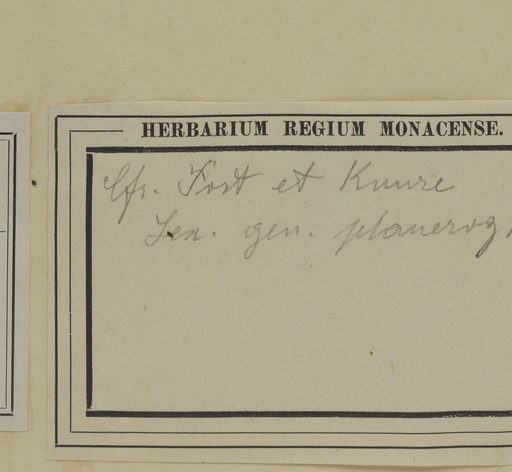 HERBARIUM REGIUM MONACENSE.
Cfr. Post et Kunze
Lex. gen. phanerog.